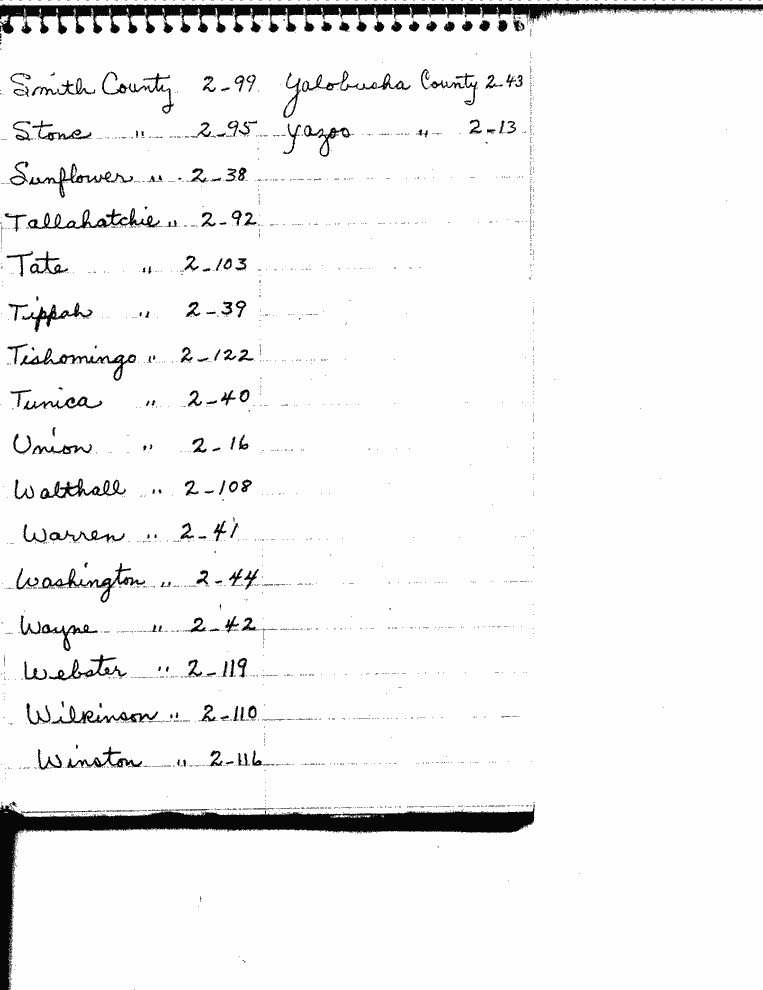 Smith County 2-99 Yalobusha County 2-43
Stone " 2-95 Yazoo " 2-13
Sunflower " 2-38
Tallahatchie " 2-92
Tate " 2-103
Tippah " 2-39
Tishomingo " 2-122
Tunica " 2-40
Union " 2-16
Walthall " 2-108
Warren " 2-41
Washington " 2-44
Wayne " 2-42
Webster " 2-119
Wilkinson " 2-110
Winston " 2-116